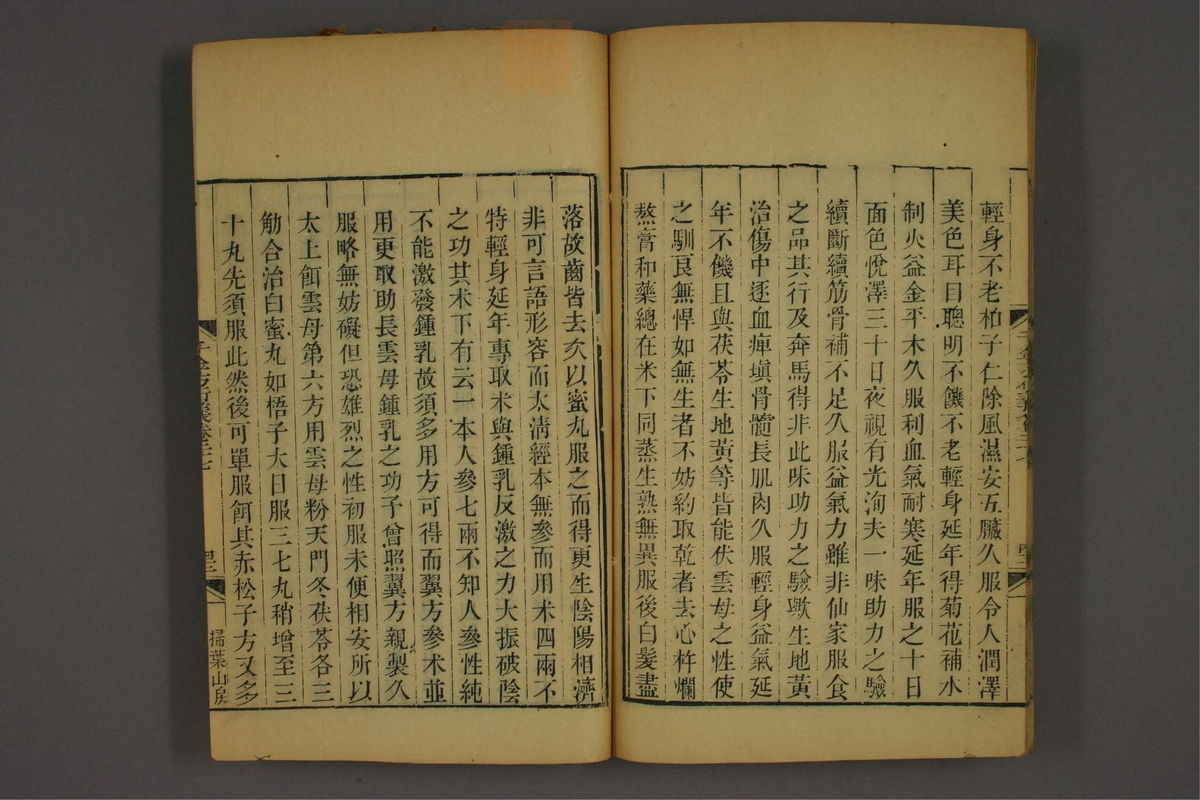 輕身不老柏子仁除風濕安五臟久服令人潤澤
美色耳目聰明不饑不老輕身延年得菊花補水
制火益金平木久服利血氣耐寒延年服之十日
面色悅澤三十日夜視有光洵夫一味助力之驗
續斷續筋骨補不足久服益氣力雖非仙家服食
之品其行及奔馬得非此味功力之驗歟生地黃
治傷中逐血痺塡骨髓長肌肉久服輕身益氣延
年不饑且與茯苓生地黃等皆能伏雲母之性使
之馴良無悍如無生者不妨約取乾者去心杵爛
熬膏和藥總在米下同蒸生熟無異服後白髮盡
落故齒皆去次以蜜丸服之而得更生陰陽相濟
非可言語形容而太淸經本無參而用术四兩不
特輕身延年專取术與鍾乳反激之力大振破陰
之功其术下有云一本人參七兩不知人參性純
不能激發鍾乳故須多用方可得而翼方參术並
用更取助長雲母鍾乳之功予曾照翼方親製久
服略無妨礙但恐雄烈之性初服未便相安所以
太上餌雲母第六方用雲母粉天門冬茯苓各三
觔合治白蜜丸如梧子大日服三七丸稍增至三
十丸先須服此然後可單服餌其赤松子方又多
掃葉山房